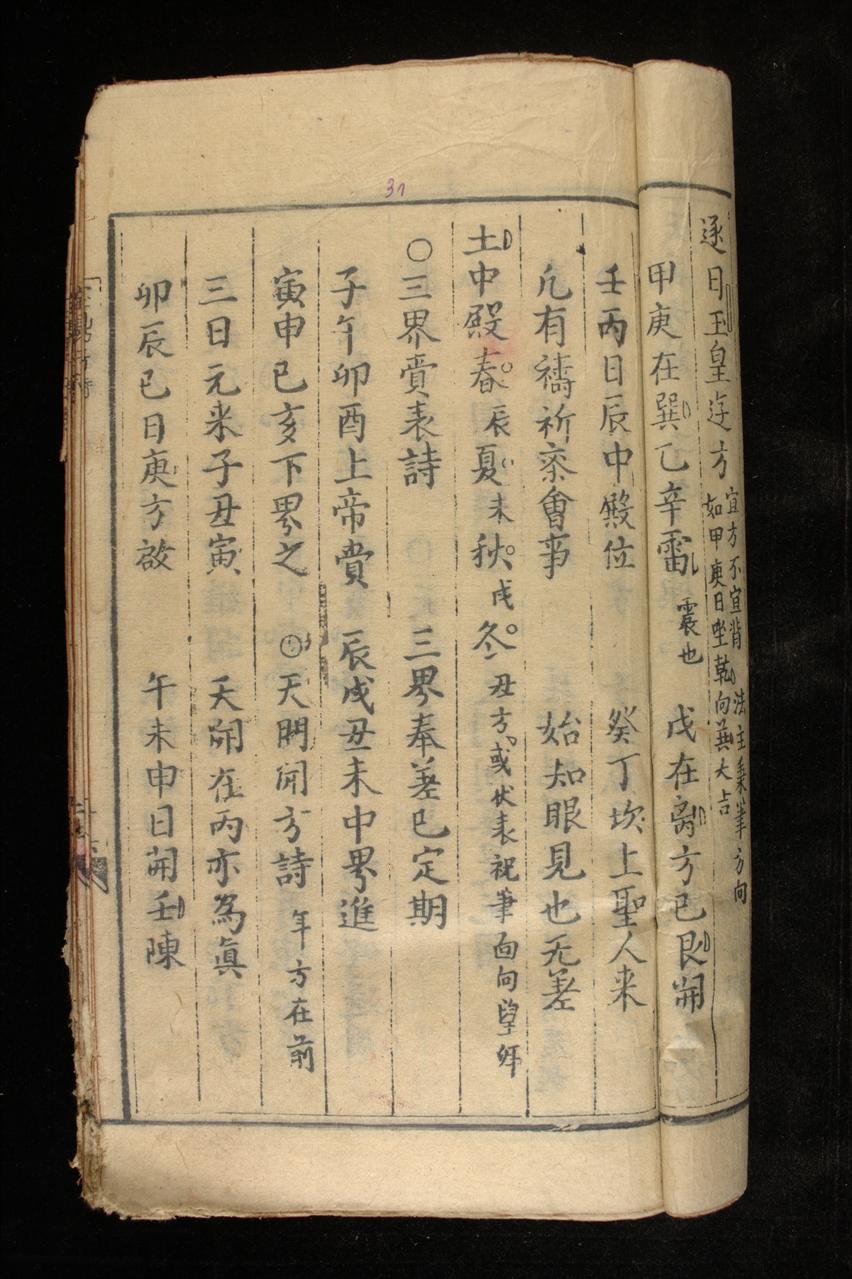 逐日玉皇边方 宜方不宜背 法主秉筆方向 如甲庚日坐乾向巽大吉
甲庚在巽乙辛雷 震也 戊在离方己艮開
壬丙日辰中殿位 癸丁坎上聖人来
凡有禱祈斋會事 始知眼見也无差
土中殿春辰夏未秋戌冬丑方或伏表祝筆面向望
○三界賫表詩 三界奉差已定期
子午卯酉上帝賫 辰戌丑未中界進
寅申巳亥下界之 ○天門開方詩 年方在前
三日元来子丑寅 天開在丙亦為真
卯辰巳日庚方啟 午未申日開壬陳
31